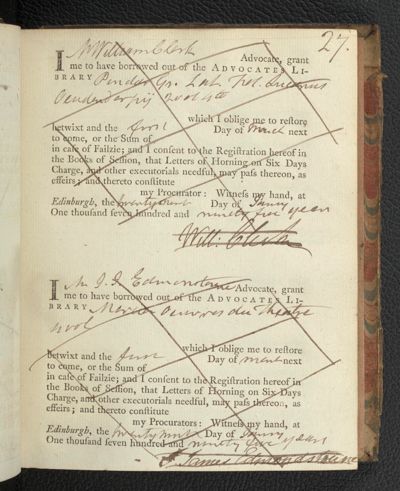 27.
I Mr William Clerk Advocate, grant
me to have borrowed out of the ADVOCATES LI-
BRARY Gr. Lat.
which I oblige me to restore
betwixt and the first Day of March next
to come, or the Sum of
in case of Failzie; and I consent to the Registration hereof in
the Books of Session, that Letters of Horning on Six Days
Charge, and other executorials needful, may pass thereon, as
effeirs; and thereto constitute
my Procurator: Witness my hand, at
Edinburgh, the Day of Janry
One thousand seven hundred and ninety five years
Will: Clerk
I Mr J. J. Edmonstoune Advocate, grant
me to have borrowed out of the ADVOCATES LI-
BRARY Oeuvres du Theatre
which I oblige me to restore
betwixt and the first Day of March next
to come, or the Sum of
in case of Failzie; and I consent to the Registration hereof in
the Books of Session, that Letters of Horning on Six Days
Charge, and other executorials needful, may pass thereon, as
effeirs; and thereto constitute
my Procurators: Witness my hand, at
Edinburgh, the Day of Janry
One thousand seven hundred and ninety five years
James Edmonstoune